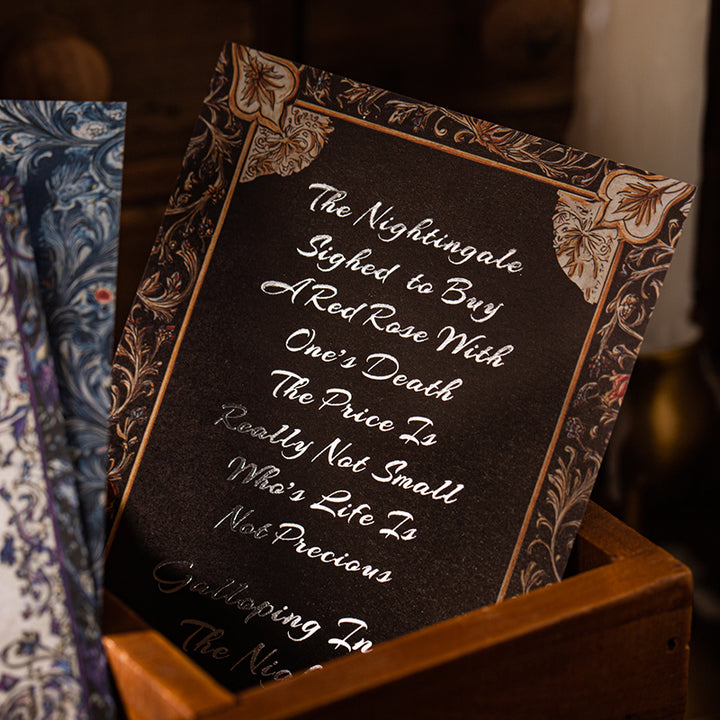 The Nightingale
Sighed to Buy
A Red Rose With
One's Death
The Price Is
Really Not Small
Who's Life Is
Not Precious
Galloping In
The